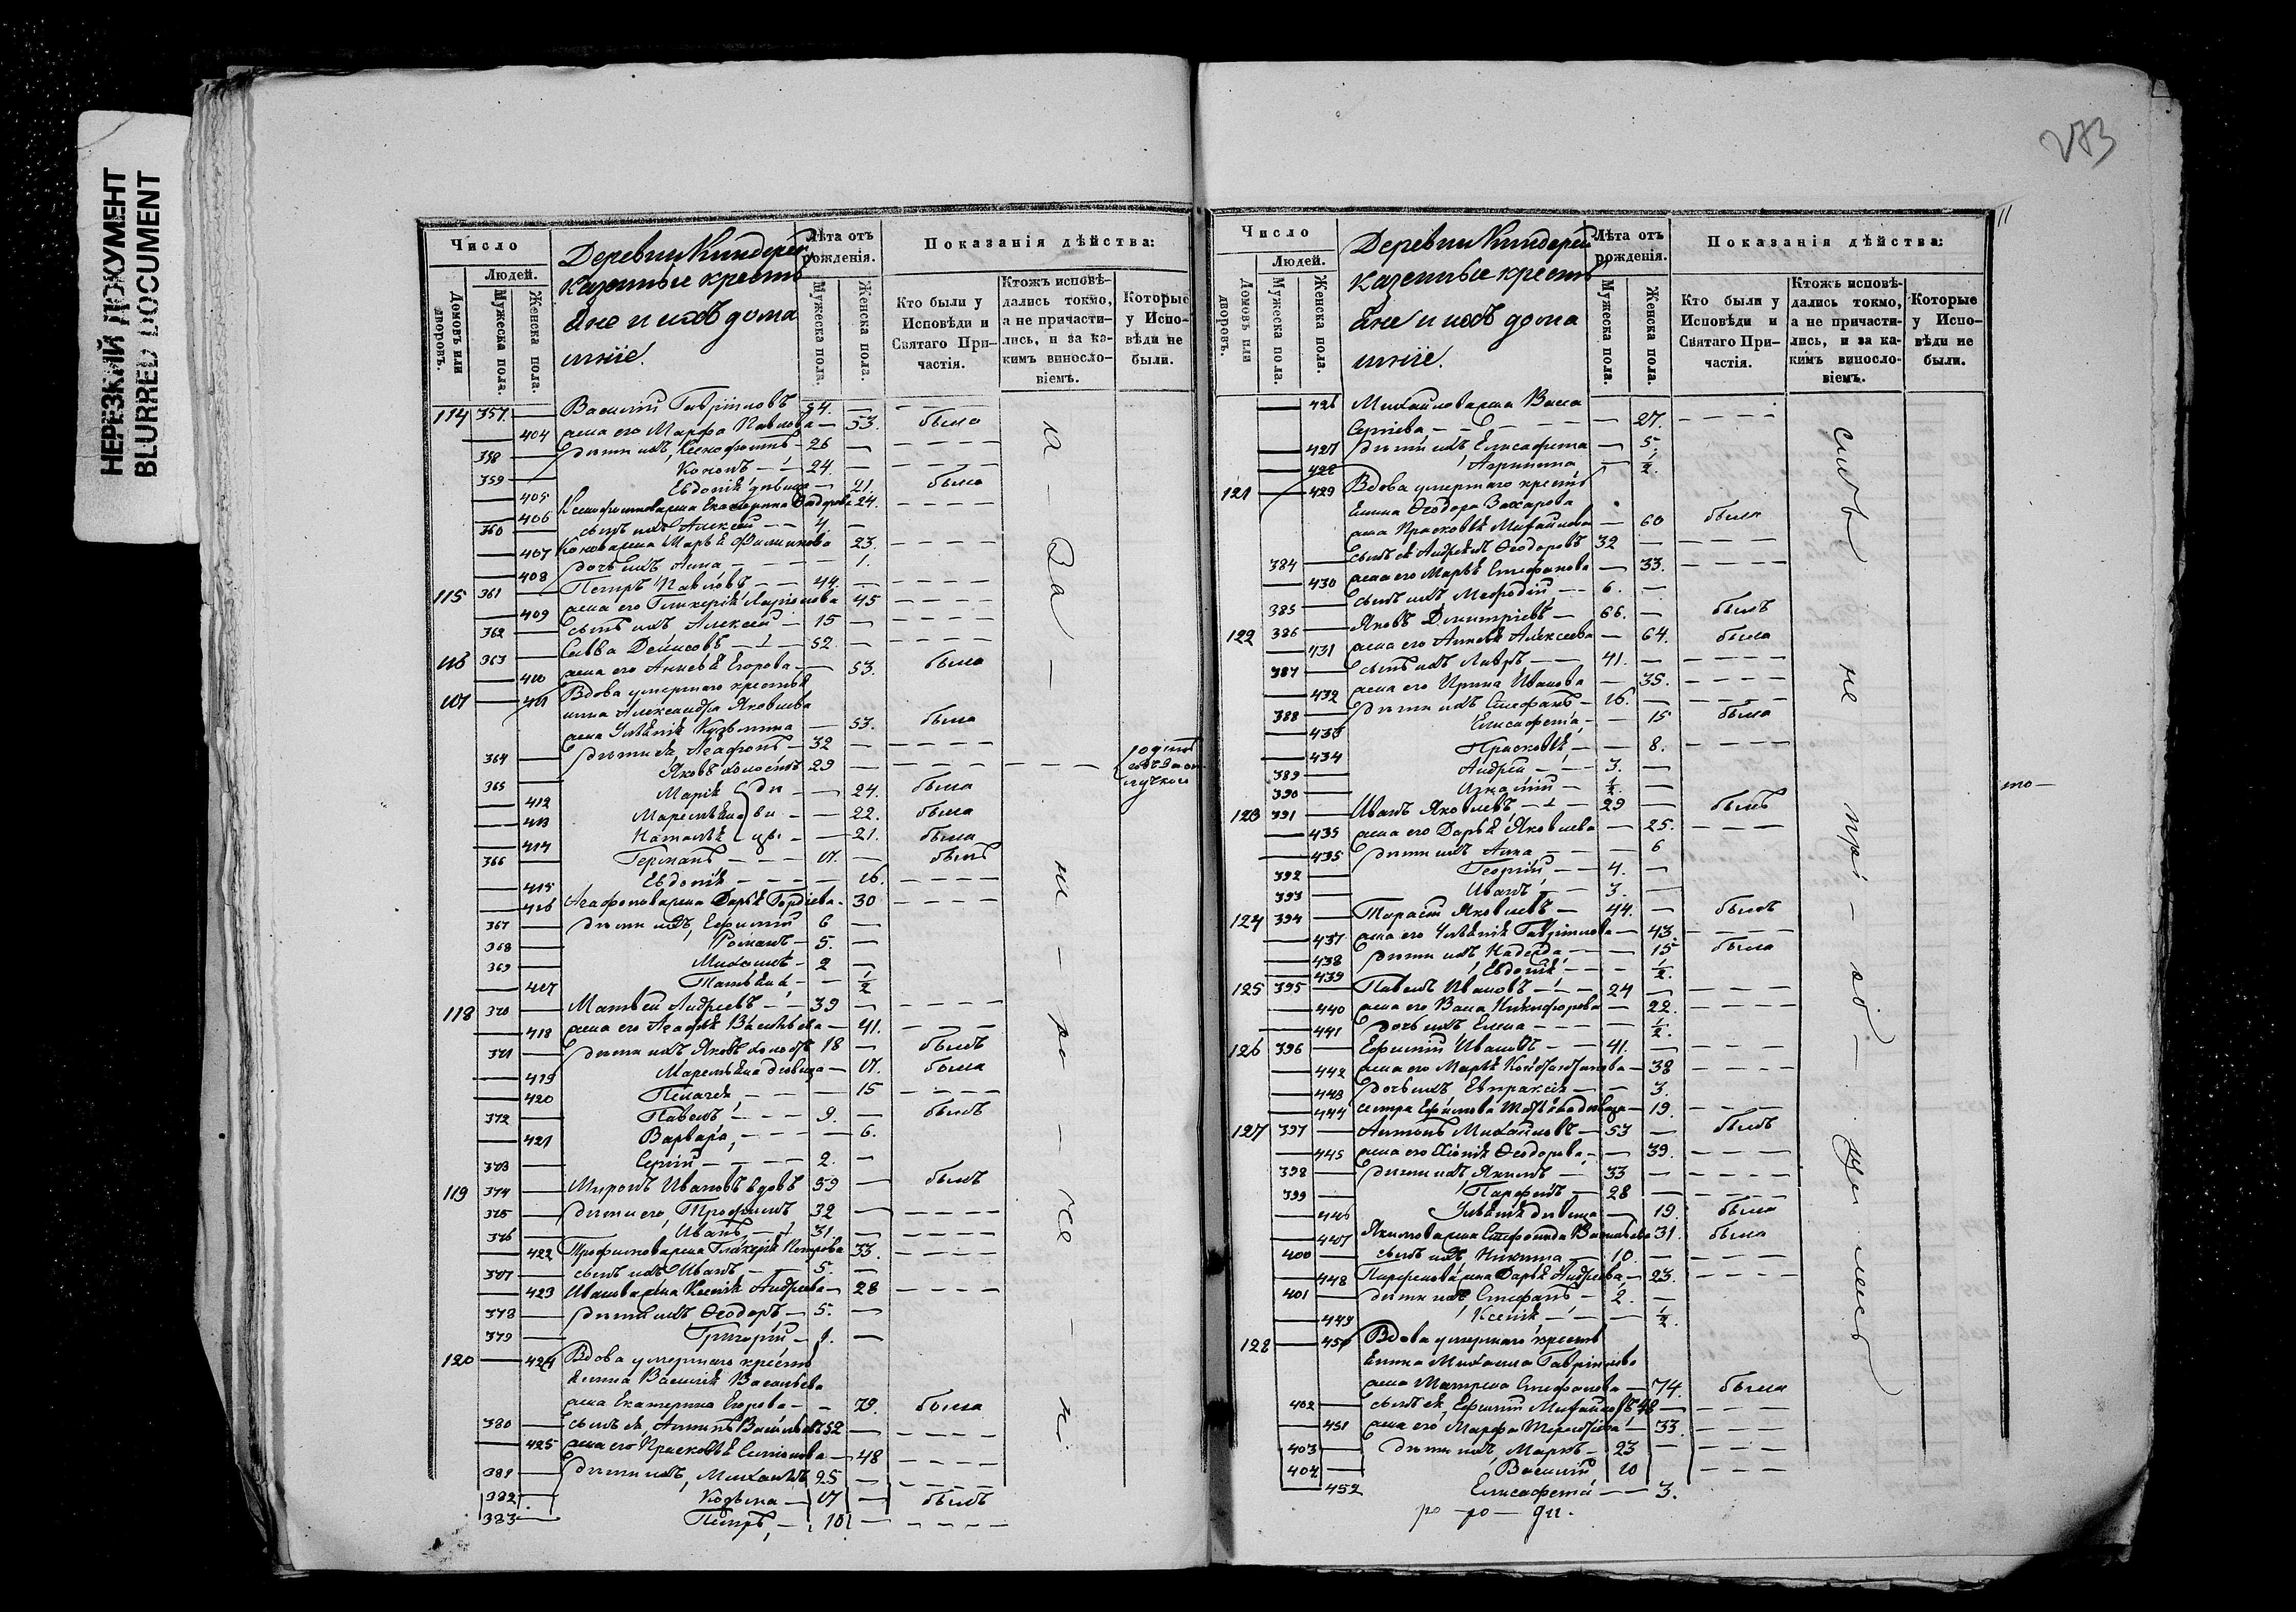 НЕРЕЗКИЙ ДОКУМЕНТ
BLURRED DOCUMENT
Число
Людей.
Домовъ или дворовъ.
Мужеска пола.
Женска пола.
Деревни
казенные кресть
яне и ихъ дома
шніе.
Лѣта отъ рожденія.
Мужеска пола.
Женска пола.
Показанія дѣйства:
Кто были у Исповѣди и Святаго Причастія.
Ктожъ исповѣдались токмо, а не причастились, и за какимъ винословіемъ.
Которые у Исповѣди не были.
114 357 Василій Гавріиловъ 54.
404 жена его Марфа Павлова 53. была
358 дѣти ихъ, Ксенофонтъ 26
359 Кононъ 24.
405 Евдокія дѣвица 21. была
406 Ксенофонтова жена Екатерина 24.
360 сынъ ихъ Алексѣй 4.
407 Кононова жена Марья Филипова 23.
408 дочь ихъ Анна 1.
115 361 Петръ Павловъ 44.
409 жена его Гликерія Ларіонова 45
362 сынъ ихъ Алексѣй 15
116 363 Савва Денисовъ 52.
410 жена его Анисья Егорова 53. была
117 411 Вдова умершаго крестья
нина Александра Яковлева
жена Ульянія Кузьмина 53. была
364 дѣти ея, Агафонъ 32
365 Яковъ холостъ 29
412 Марія 24. была
413 Маремьяна 22. была
414 Наталья 21. была
366 Германъ 17. былъ
415 Евдокія 16.
416 Агафонова жена Дарья Гордѣева 30
367 дѣти ихъ, Ефимій 6
368 Романъ 5.
369 Михаилъ 2
417 Татьяна ½
118 370 Матвѣй Андреевъ 39
418 жена его Агафья Васильева 41.
371 дѣти ихъ Яковъ холостъ 18 былъ
419 Маремьяна дѣвица 17. была
420 Пелагея 15
372 Павелъ 9. былъ
421 Варвара 6.
373 Сергій 2.
119 374 Миронъ Ивановъ вдовъ 59 былъ
375 дѣти его, Трофимъ 32
376 Иванъ 31
422 Трофимова жена Гликерія Петрова 33.
377 сынъ ихъ Иванъ 5.
423 Иванова жена Ксенія Андреева 28
378 дѣти ихъ Ѳеодоръ 5.
379 Григорій 1.
120 424 Вдова умершаго кресть
янина Василія Васильева
жена Екатерина Егорова 79. была
380 сынъ ея, Антипъ Васильевъ 52
425 жена его Прасковья Симонова 48
381 дѣти ихъ, Михаилъ 25
382 Козьма 17 былъ
383 Петръ 10
273
11
Число
Людей.
Домовъ или дворовъ.
Мужеска пола.
Женска пола.
Деревни
казенные кресть
яне и ихъ дома
шніе.
Лѣта отъ рожденія.
Мужеска пола.
Женска пола.
Показанія дѣйства:
Кто были у Исповѣди и Святаго Причастія.
Ктожъ исповѣдались токмо, а не причастились, и за какимъ винословіемъ.
Которые у Исповѣди не были.
426 Михайлова жена Васса
Сергіева 27.
427 дѣти ихъ Елисафета 5.
428 Агрипина ½.
121 429 Вдова умершаго кресть
янина Ѳеодора Захарова
жена Прасковья Михайлова 60 была
384 сынъ ея Андрей Ѳеодоровъ 32
430 жена его Марья Стефанова 33.
385 сынъ ихъ Меѳодій 6.
122 386 Яковъ Димитріевъ 66. былъ
431 жена его Анисья Алексеева 64. была
387 сынъ ихъ Лавръ 41.
432 жена его Ирина Иванова 35.
388 дѣти ихъ Стефанъ 16.
433 Елисафета 15 была
434 Прасковья 8.
389 Андрей 3.
390 ½.
123 391 Иванъ Яковлевъ 29 былъ
435 жена его Дарья Яковлева 25.
435 дѣти ихъ Анна 6
392 Георгій 4.
393 Иванъ 3.
124 394 Тарасій Яковлевъ 44. былъ
437 жена его Ульянія Гавріилова 43
438 дѣти ихъ Надежда 15 была
439 Евдокія ½.
125 395 Павелъ Ивановъ 24
440 жена его Васса Никифорова 22.
441 дочь ихъ Елена ½.
126 396 Ефимій Ивановъ 41.
442 жена его Марья 38
443 дочь ихъ Евпраксія 3.
444 сестра Ефимова Татьяна дѣвица 19.
127 397 Антонъ Михайловъ 53 былъ
445 жена его Хіонія Ѳеодорова 39.
398 дѣти ихъ Якимъ 33
399 Парфенъ 28
446 Ульянія дѣвица 19. была
447 Якимова жена Стефанида Васильева 31. была
400 сынъ ихъ Никита 10.
448 Парфенова жена Дарья Андреева 23.
401 дѣти ихъ Стефанъ 2.
449 Ксенія ½.
128 450 Вдова умершаго кресть
янина Михаила Гаврилова
жена Матрена Стефанова 74. была
402 сынъ ея, Ефимій Михайловъ 48
451 жена его Марфа 33.
403 дѣти ихъ, Маркъ 23
404 Василій 10
452 Елисафета 3.